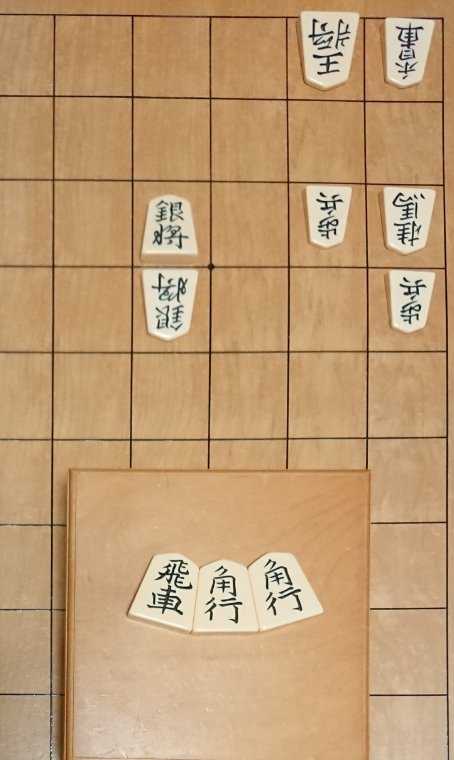 王将
香車
銀将
歩兵
桂馬
銀将
歩兵
飛車
角行
角行